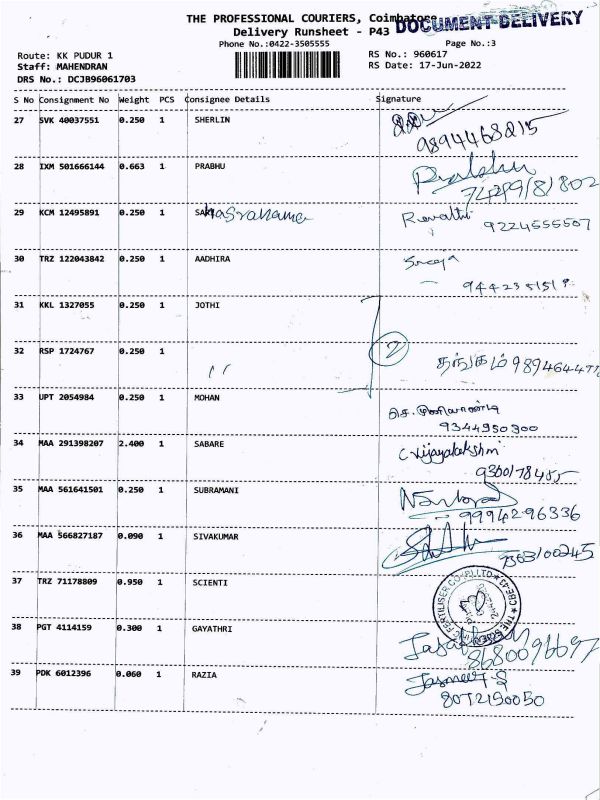 THE PROFESSIONAL COURIERS, Coimbatore
DOCUMENT DELIVERY
Delivery Runsheet - P43
Phone No.:0422-3505555
Page No.:3
Route: KK PUDUR 1
RS No.: 960617
Staff: MAHENDRAN
RS Date: 17-Jun-2022
DRS No.: DCJB96061703
S No Consignment No Weight PCS Consignee Details Signature
27 SVK 40037551 0.250 1 SHERLIN
9894468215
28 IXM 501666144 0.663 1 PRABHU
29 KCM 12495891 0.250 1 Revathi
9224555507
30 TRZ 122043842 0.250 1 AADHIRA
31 KKL 1327055 0.250 1 JOTHI
2
32 RSP 1724767 0.250 1 தங்கம்
33 UPT 2054984 0.250 1 MOHAN
9344950300
34 MAA 291398207 2.400 1 SABARE C Vijayalakshmi
35 MAA 561641501 0.250 1 SUBRAMANI
9994296336
36 MAA 566827187 0.090 1 SIVAKUMAR
37 TRZ 71178809 0.950 1 SCIENTI
38 PGT 4114159 0.300 1 GAYATHRI
39 PDK 6012396 0.060 1 RAZIA Jasmeet S
8072190050